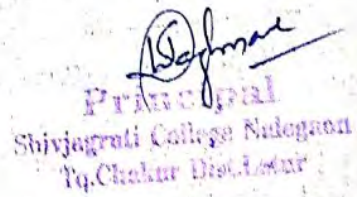 Principal
Shivjagruti College Nalegaon
Tq.Chakur Dist.Latur